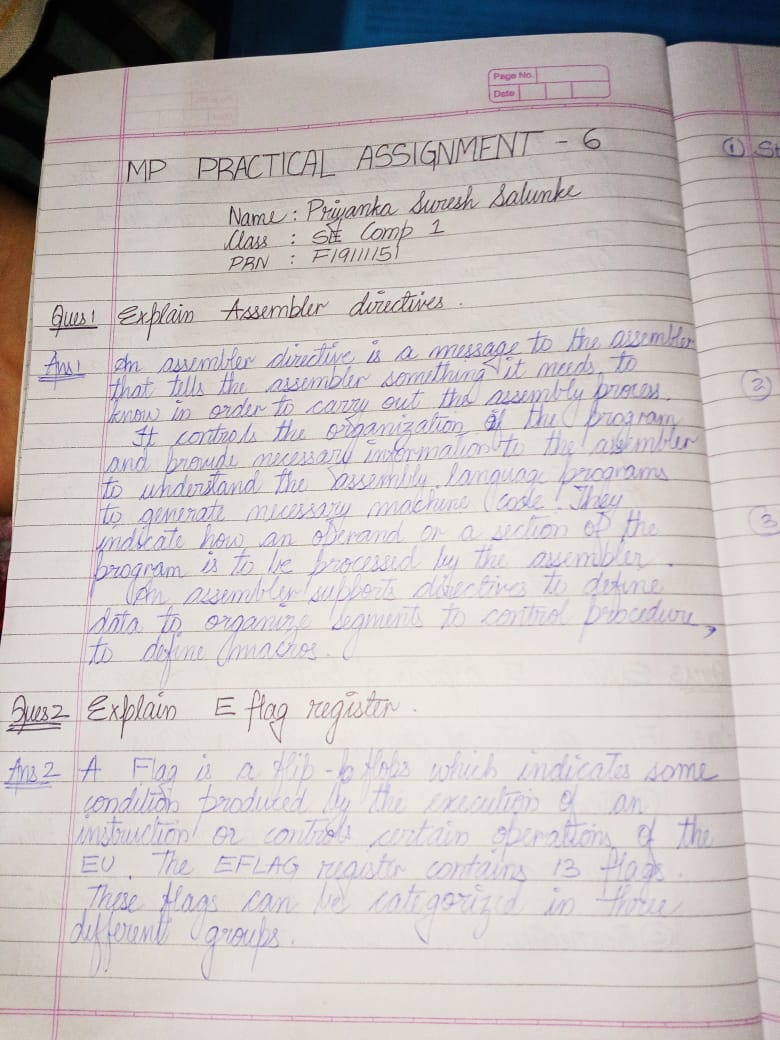 Page No.
Date
MP PRACTICAL ASSIGNMENT - 6
Name : Priyanka Suresh Salunke
Class : SE Comp 1
PRN : F19111151
Ques 1 Explain Assembler directives.
Ans 1 An assembler directive is a message to the assembler
that tells the assembler something it needs to
know in order to carry out the assembly process.
It controls the organization of the program
and provide necessary information to the assembler
to understand the assembly language programs
to generate necessary machine code. They
indicate how an operand or a section of the
program is to be processed by the assembler.
An assembler supports directives to define
data, to organize segments to control procedure,
to define macros.
Ques 2 Explain E flag register.
Ans 2 A Flag is a flip-flops which indicates some
condition produced by the execution of an
instruction or controls certain operations of the
EU. The EFLAG register contains 13 flags.
These flags can be categorized in three
different groups.
1 St
2
3